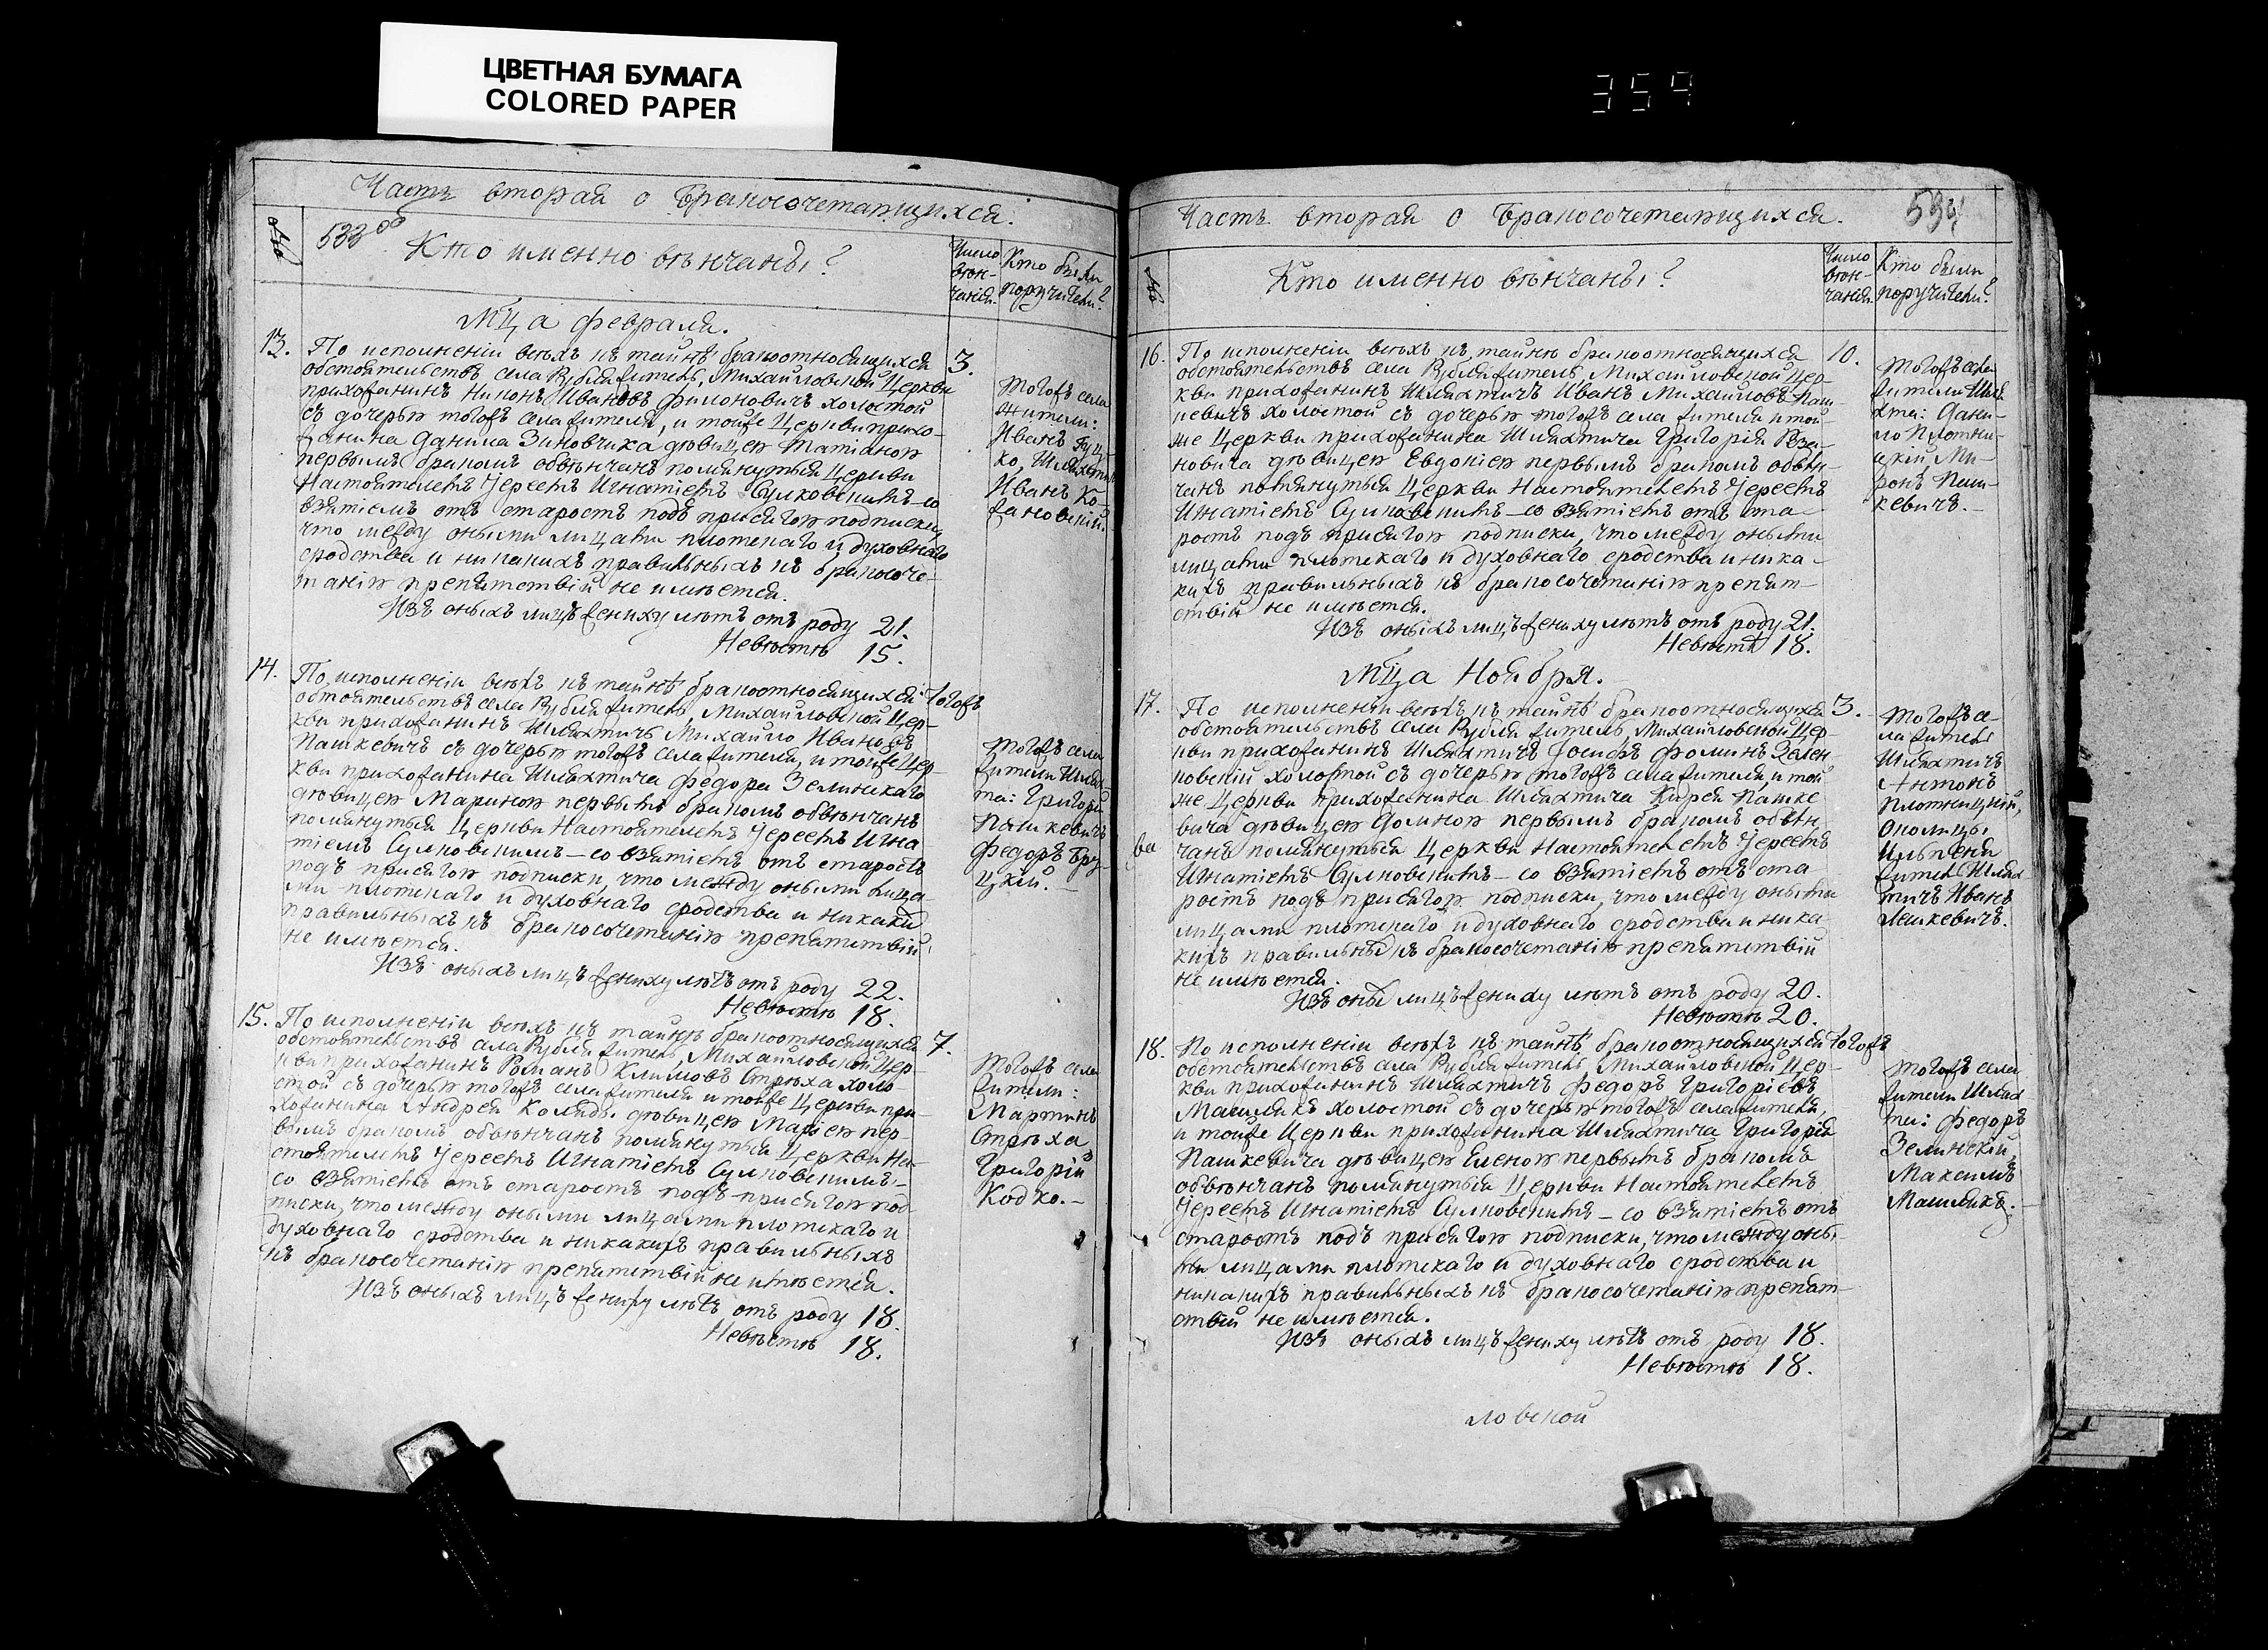 ЦВЕТНАЯ БУМАГА
COLORED PAPER
359
Часть вторая о Бракосочетающихся.
№
533 об
Кто именно вѣнчаны?
Число
вѣн-
чанія.
Кто были
поручители?
Мца февраля.
13.
По исполненіи всѣхъ къ тайнѣ бракоотносящихся
обстоятельствъ села Рубля житель, Михайловской Церкви
прихожанинъ Никонъ Ивановъ Филоновичъ холостой
съ дочерью тогожъ села жителя, и тойже Церкви прихо-
жанина Данила Зиновчика дѣвицею Татіаною
первымъ бракомъ обвѣнчанъ помянутыя Церкви
Настоятелемъ Іереемъ Игнатіемъ Сулковскимъ – со
взятіемъ отъ старостъ подъ присягою подписки,
что между оными лицами плотскаго и духовнаго
сродства и никакихъ правильныхъ къ бракосоче-
танію препятствій не имѣется.
Изъ оныхъ лицъ жениху лѣтъ отъ роду 21.
Невѣстѣ 15.
3.
Тогожъ села
жители:
Иванъ
ко, Шляхтичъ
Иванъ Ко-
жановскій.
14.
По исполненіи всѣхъ къ тайнѣ бракоотносящихся
обстоятельствъ села Рубля житель, Михайловской Цер-
кви прихожанинъ Шляхтичъ Михайло Ивановъ
Пашкевичъ съ дочерью тогожъ села жителя, и тойже Цер-
кви прихожанина Шляхтича Федора Зелинскаго
дѣвицею Мариною первымъ бракомъ обвѣнчанъ
помянутыя Церкви Настоятелемъ Іереемъ Игна
тіемъ Сулковскимъ – со взятіемъ отъ старостъ
подъ присягою подписки, что между оными лица-
ми плотскаго и духовнаго сродства и никакихъ
правильныхъ къ бракосочетанію препятствій
не имѣется.
Изъ оныхъ лицъ жениху лѣтъ отъ роду 22.
Невѣстѣ 18.
тогожъ
Тогожъ села
жители Шлях
та: Григорій
Пашкевичъ
Федоръ Бру-
цкій.
15.
По исполненіи всѣхъ къ тайнѣ бракоотносящихся
обстоятельствъ села Рубля житель, Михайловской Цер-
кви прихожанинъ Романъ Климовъ Стрѣха холо-
стой съ дочерью тогожъ села жителя и тойже Церкви при-
хожанина Андрея Коляды дѣвицею Маріею пер-
вымъ бракомъ обвѣнчанъ помянутыя Церкви На-
стоятелемъ Іереемъ Игнатіемъ Сулковскимъ –
со взятіемъ отъ старостъ подъ присягою под
писки, что между оными лицами плотскаго и
духовнаго сродства и никакихъ правильныхъ
къ бракосочетанію препятствій не имѣется.
Изъ оныхъ лицъ жениху лѣтъ отъ роду 18.
Невѣстѣ 18.
7.
Тогожъ села
жители:
Мартинъ
Стрѣха
Григорій
Кодко.
Часть вторая о Бракосочетающихся.
534
№
Кто именно вѣнчаны?
Число
вѣн-
чанія.
Кто были
поручители?
16.
По исполненіи всѣхъ къ тайнѣ бракоотносящихся
обстоятельствъ села Рубля житель, Михайловской Цер-
кви прихожанинъ Шляхтичъ Иванъ Михайловъ Паш-
кевичъ холостой съ дочерью тогожъ села жителя и той-
же Церкви прихожанина Шляхтича Григорія
новича дѣвицею Евдокіею первымъ бракомъ обвѣн-
чанъ помянутыя Церкви Настоятелемъ Іереемъ
Игнатіемъ Сулковскимъ – со взятіемъ отъ ста-
ростъ подъ присягою подписки, что между оными
лицами плотскаго и духовнаго сродства и ника-
кихъ правильныхъ къ бракосочетанію препят-
ствій не имѣется.
Изъ оныхъ лицъ жениху лѣтъ отъ роду 21.
Невѣстѣ 18.
10.
Тогожъ села
жители Шля
хта: Дани-
ло Плотни-
цкій, Ми-
ронъ Паш-
кевичъ.
Мца Ноября.
17.
По исполненіи всѣхъ къ тайнѣ бракоотносящихся
обстоятельствъ села Рубля житель, Михайловской Цер-
кви прихожанинъ Шляхтичъ Іосифъ Фоминъ Зелен
ковскій холостой съ дочерью тогожъ села жителя, и той
же Церкви прихожанина Шляхтича Кирея Пашке
вича дѣвицею Домною первымъ бракомъ обвѣн
чанъ помянутыя Церкви Настоятелемъ Іереемъ
Игнатіемъ Сулковскимъ – со взятіемъ отъ ста
ростъ подъ присягою подписки, что между оными
лицами плотскаго и духовнаго сродства и ника
кихъ правильныхъ къ бракосочетанію препятствій
не имѣется.
Изъ оныхъ лицъ жениху лѣтъ отъ роду 20.
Невѣстѣ 20.
ва
3.
Тогожъ се-
ла житель
Шляхтичъ
Антонъ
Плотницкій,
Околицы
житель Шлях
тичъ Иванъ
18.
По исполненіи всѣхъ къ тайнѣ бракоотносящихся
обстоятельствъ села Рубля житель Михайловской Цер-
кви прихожанинъ Шляхтичъ Федоръ Григоріевъ
Машлякъ холостой съ дочерью тогожъ села жителя,
и тойже Церкви прихожанина Шляхтича Григорія
Пашкевича дѣвицею Еленою первымъ бракомъ
обвѣнчанъ помянутыя Церкви Настоятелемъ
Іереемъ Игнатіемъ Сулковскимъ – со взятіемъ отъ
старостъ подъ присягою подписки, что между оны
ми лицами плотскаго и духовнаго сродства и
никакихъ правильныхъ къ бракосочетанію препят-
ствій не имѣется.
Изъ оныхъ лицъ жениху лѣтъ отъ роду 18.
Невѣстѣ 18.
тогожъ
Тогожъ села
жители Шлях
та: Федоръ
Зелинскій,
Максимъ
Машлякъ.
ловской